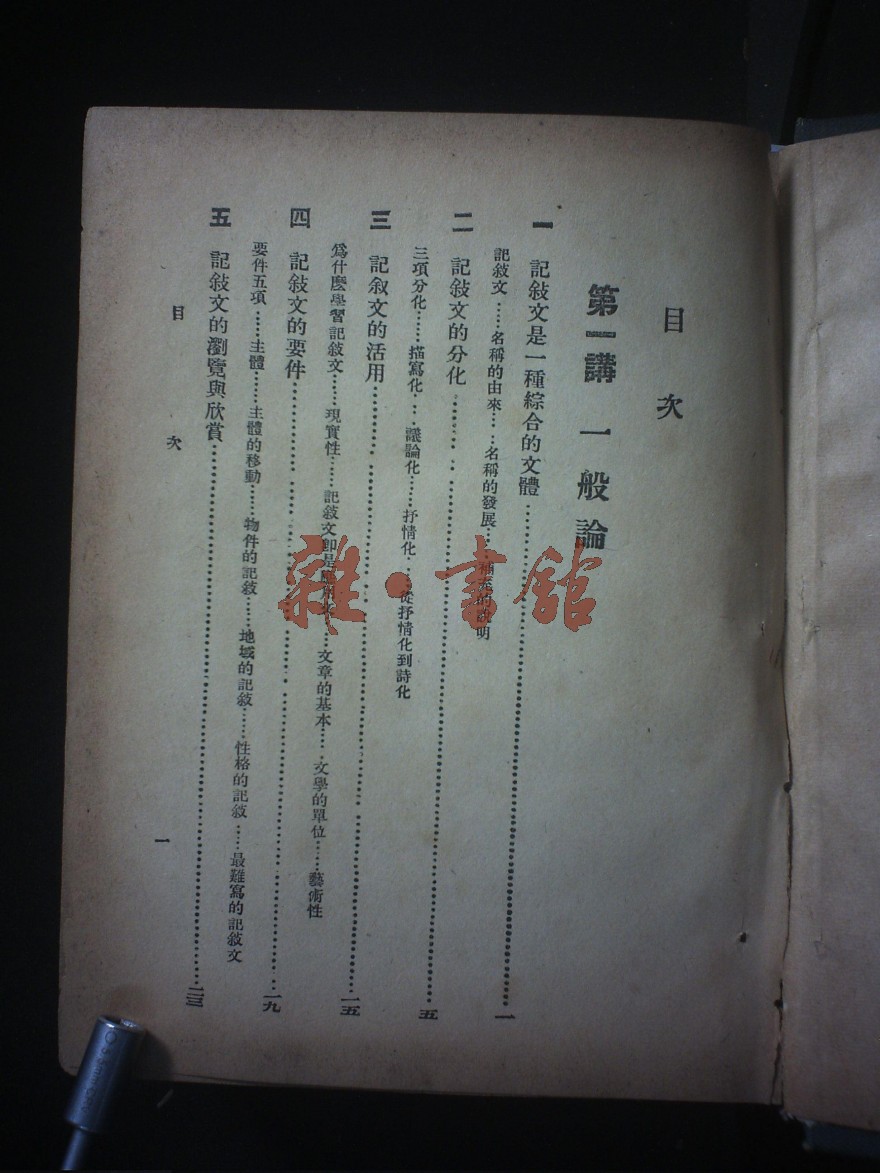 目次
第一講 一般論
一 記敍文是一種綜合的文體……一
記敍文……名稱的由來……名稱的發展……補充的說明
二 記敍文的分化……五
三項分化……描寫化……議論化……抒情化……從抒情化到詩化
三 記叙文的活用……一五
爲什麼學習記敍文……現實性……記敍文即是應用文……文章的基本……文學的單位……藝術性
四 記敍文的要件……一九
要件五項……主體……主體的移動……物件的記敍……地域的記敍……性格的記敍……最難寫的記敍文
五 記敍文的瀏覽與欣賞……二三
目次
一
雜·書館